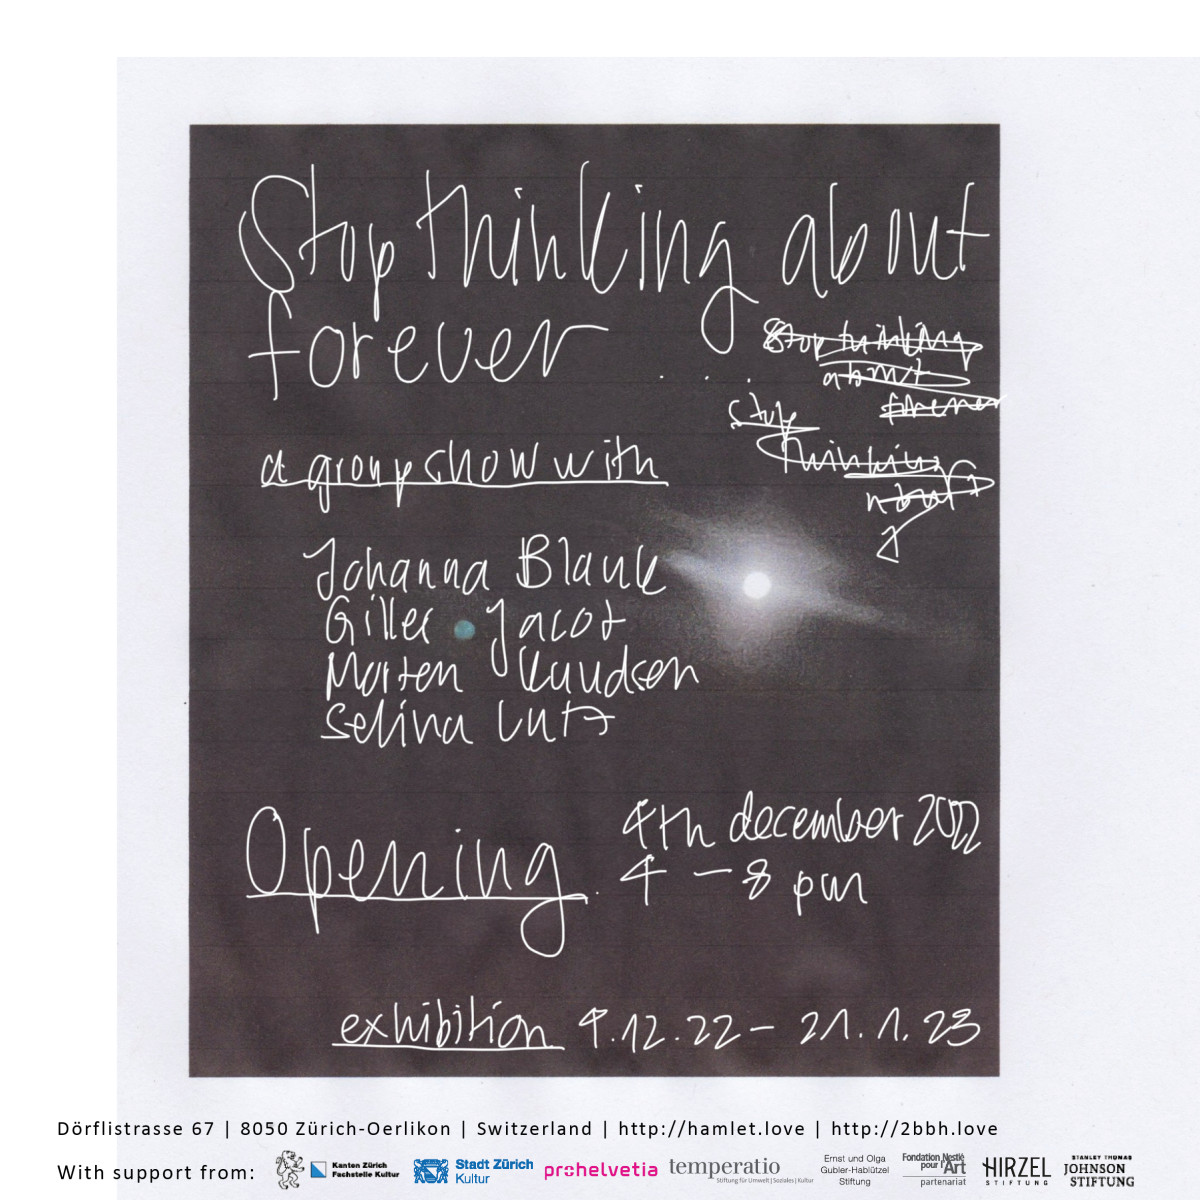 Stop thinking about
forever
Stop thinking
about
forever
stop
thinking
about
a group show with
Johanna Blank
Gilles Jacot
Morten Knudsen
Selina Lutz
Opening
4th december 2022
4 – 8 pm
exhibition 4.12.22 – 21.1.23
Dörflistrasse 67 | 8050 Zürich-Oerlikon | Switzerland | http://hamlet.love | http://2bbh.love
With support from:
Kanton Zürich
Fachstelle Kultur
Stadt Zürich
Kultur
prohelvetia
temperatio
Stiftung für Umwelt | Soziales | Kultur
Ernst und Olga
Gubler-Hablützel
Stiftung
Fondation Nestlé
pour l'Art
partenariat
HIRZEL
STIFTUNG
STANLEY THOMAS
JOHNSON
STIFTUNG